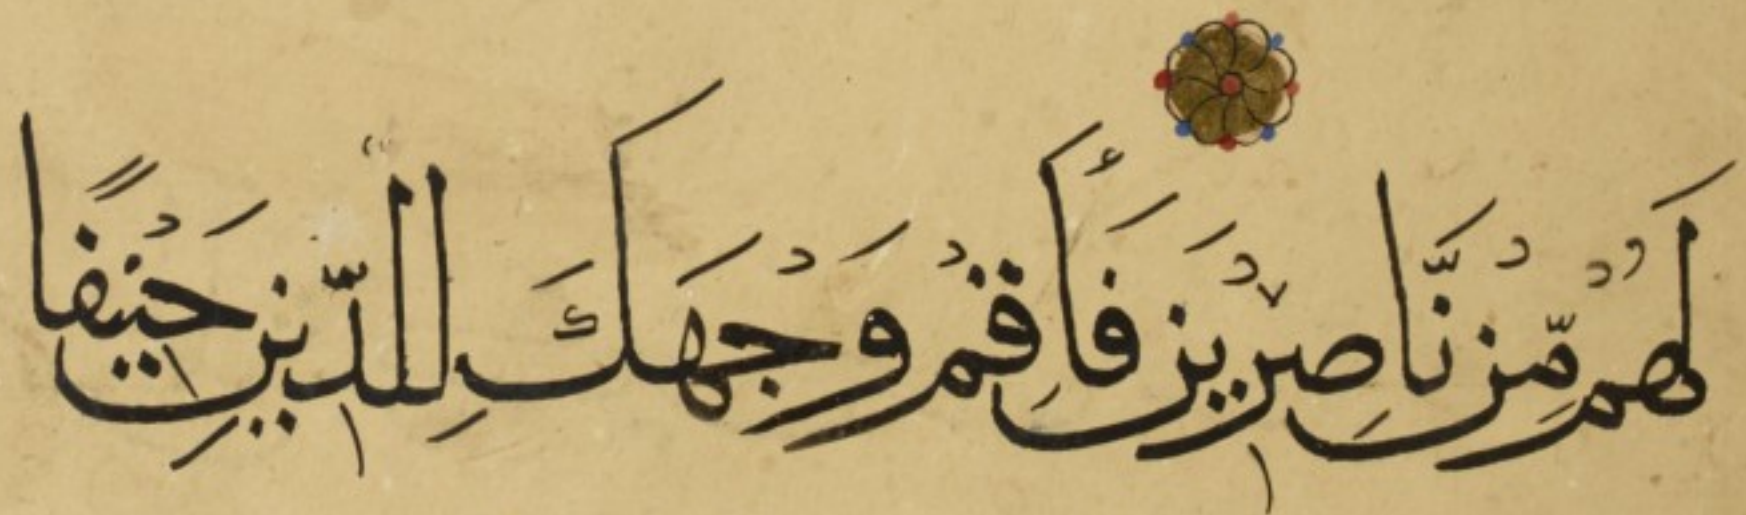 لَهُمْ مِّنْ نَّاصِرِيْنَ فَأَقِمْ وَجْهَكَ لِلدِّيْنِ حَنِيْفًا